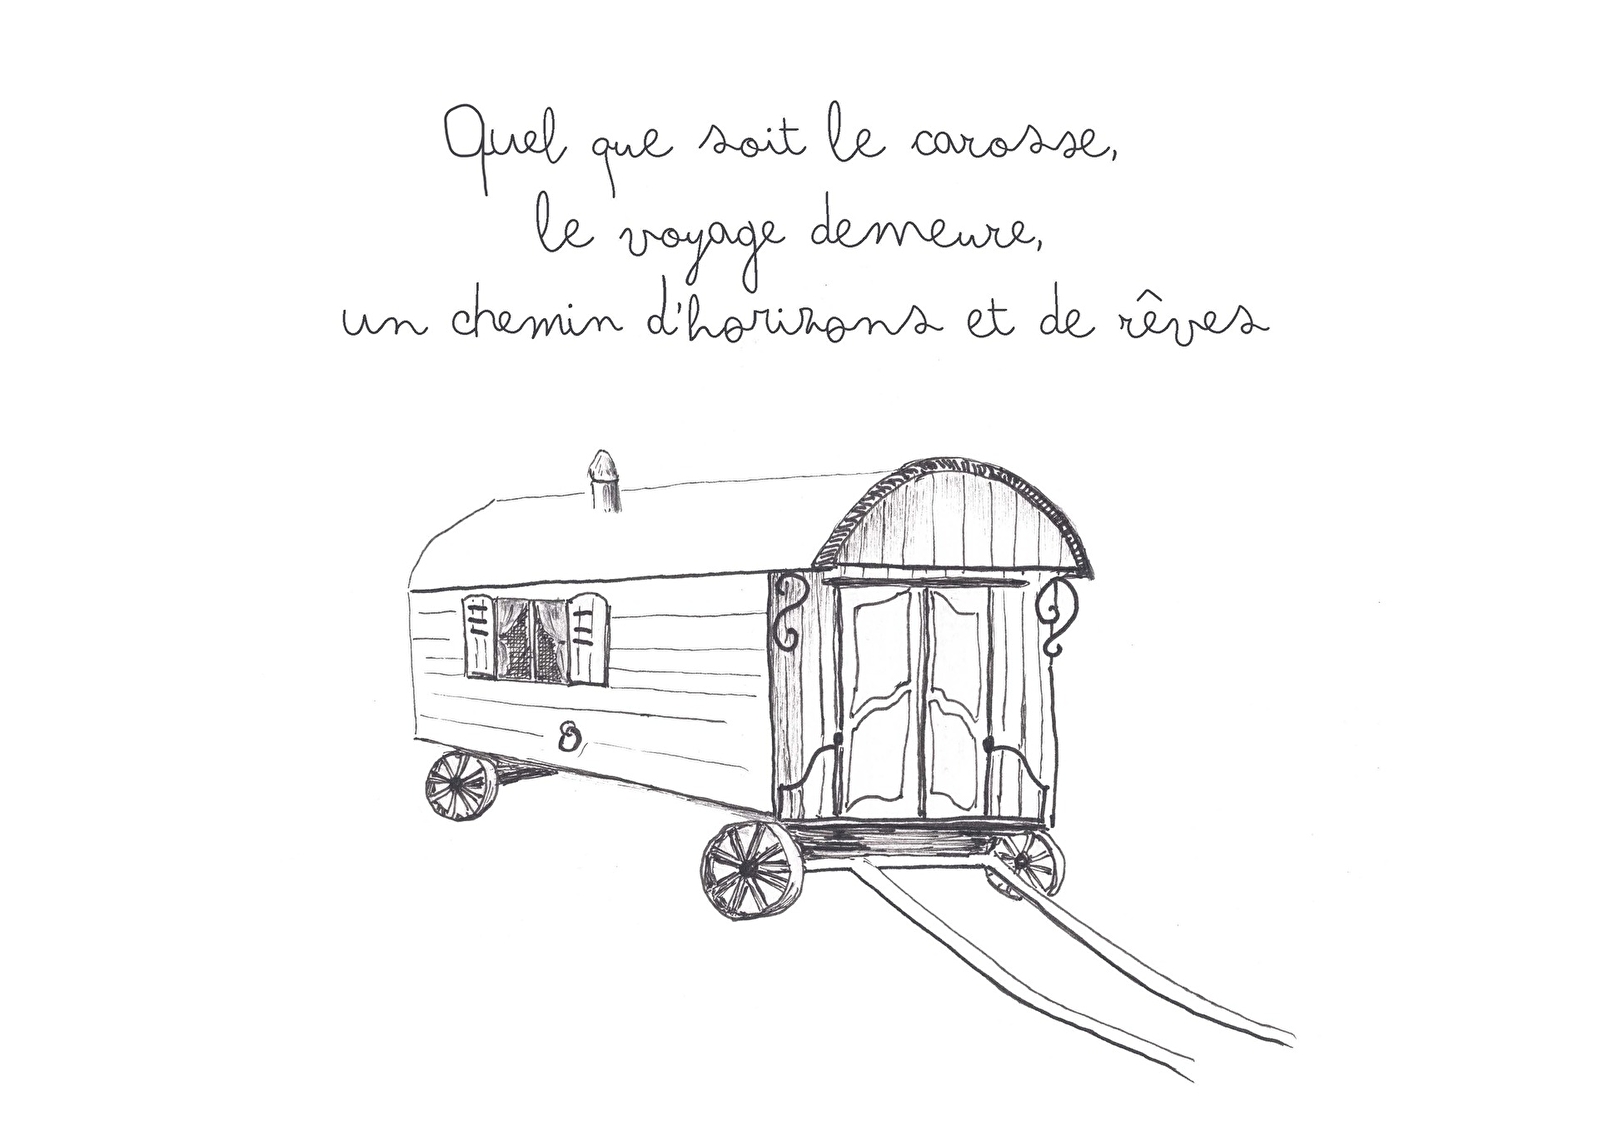 Quel que soit le carosse,
le voyage demeure,
un chemin d'horizons et de rêves